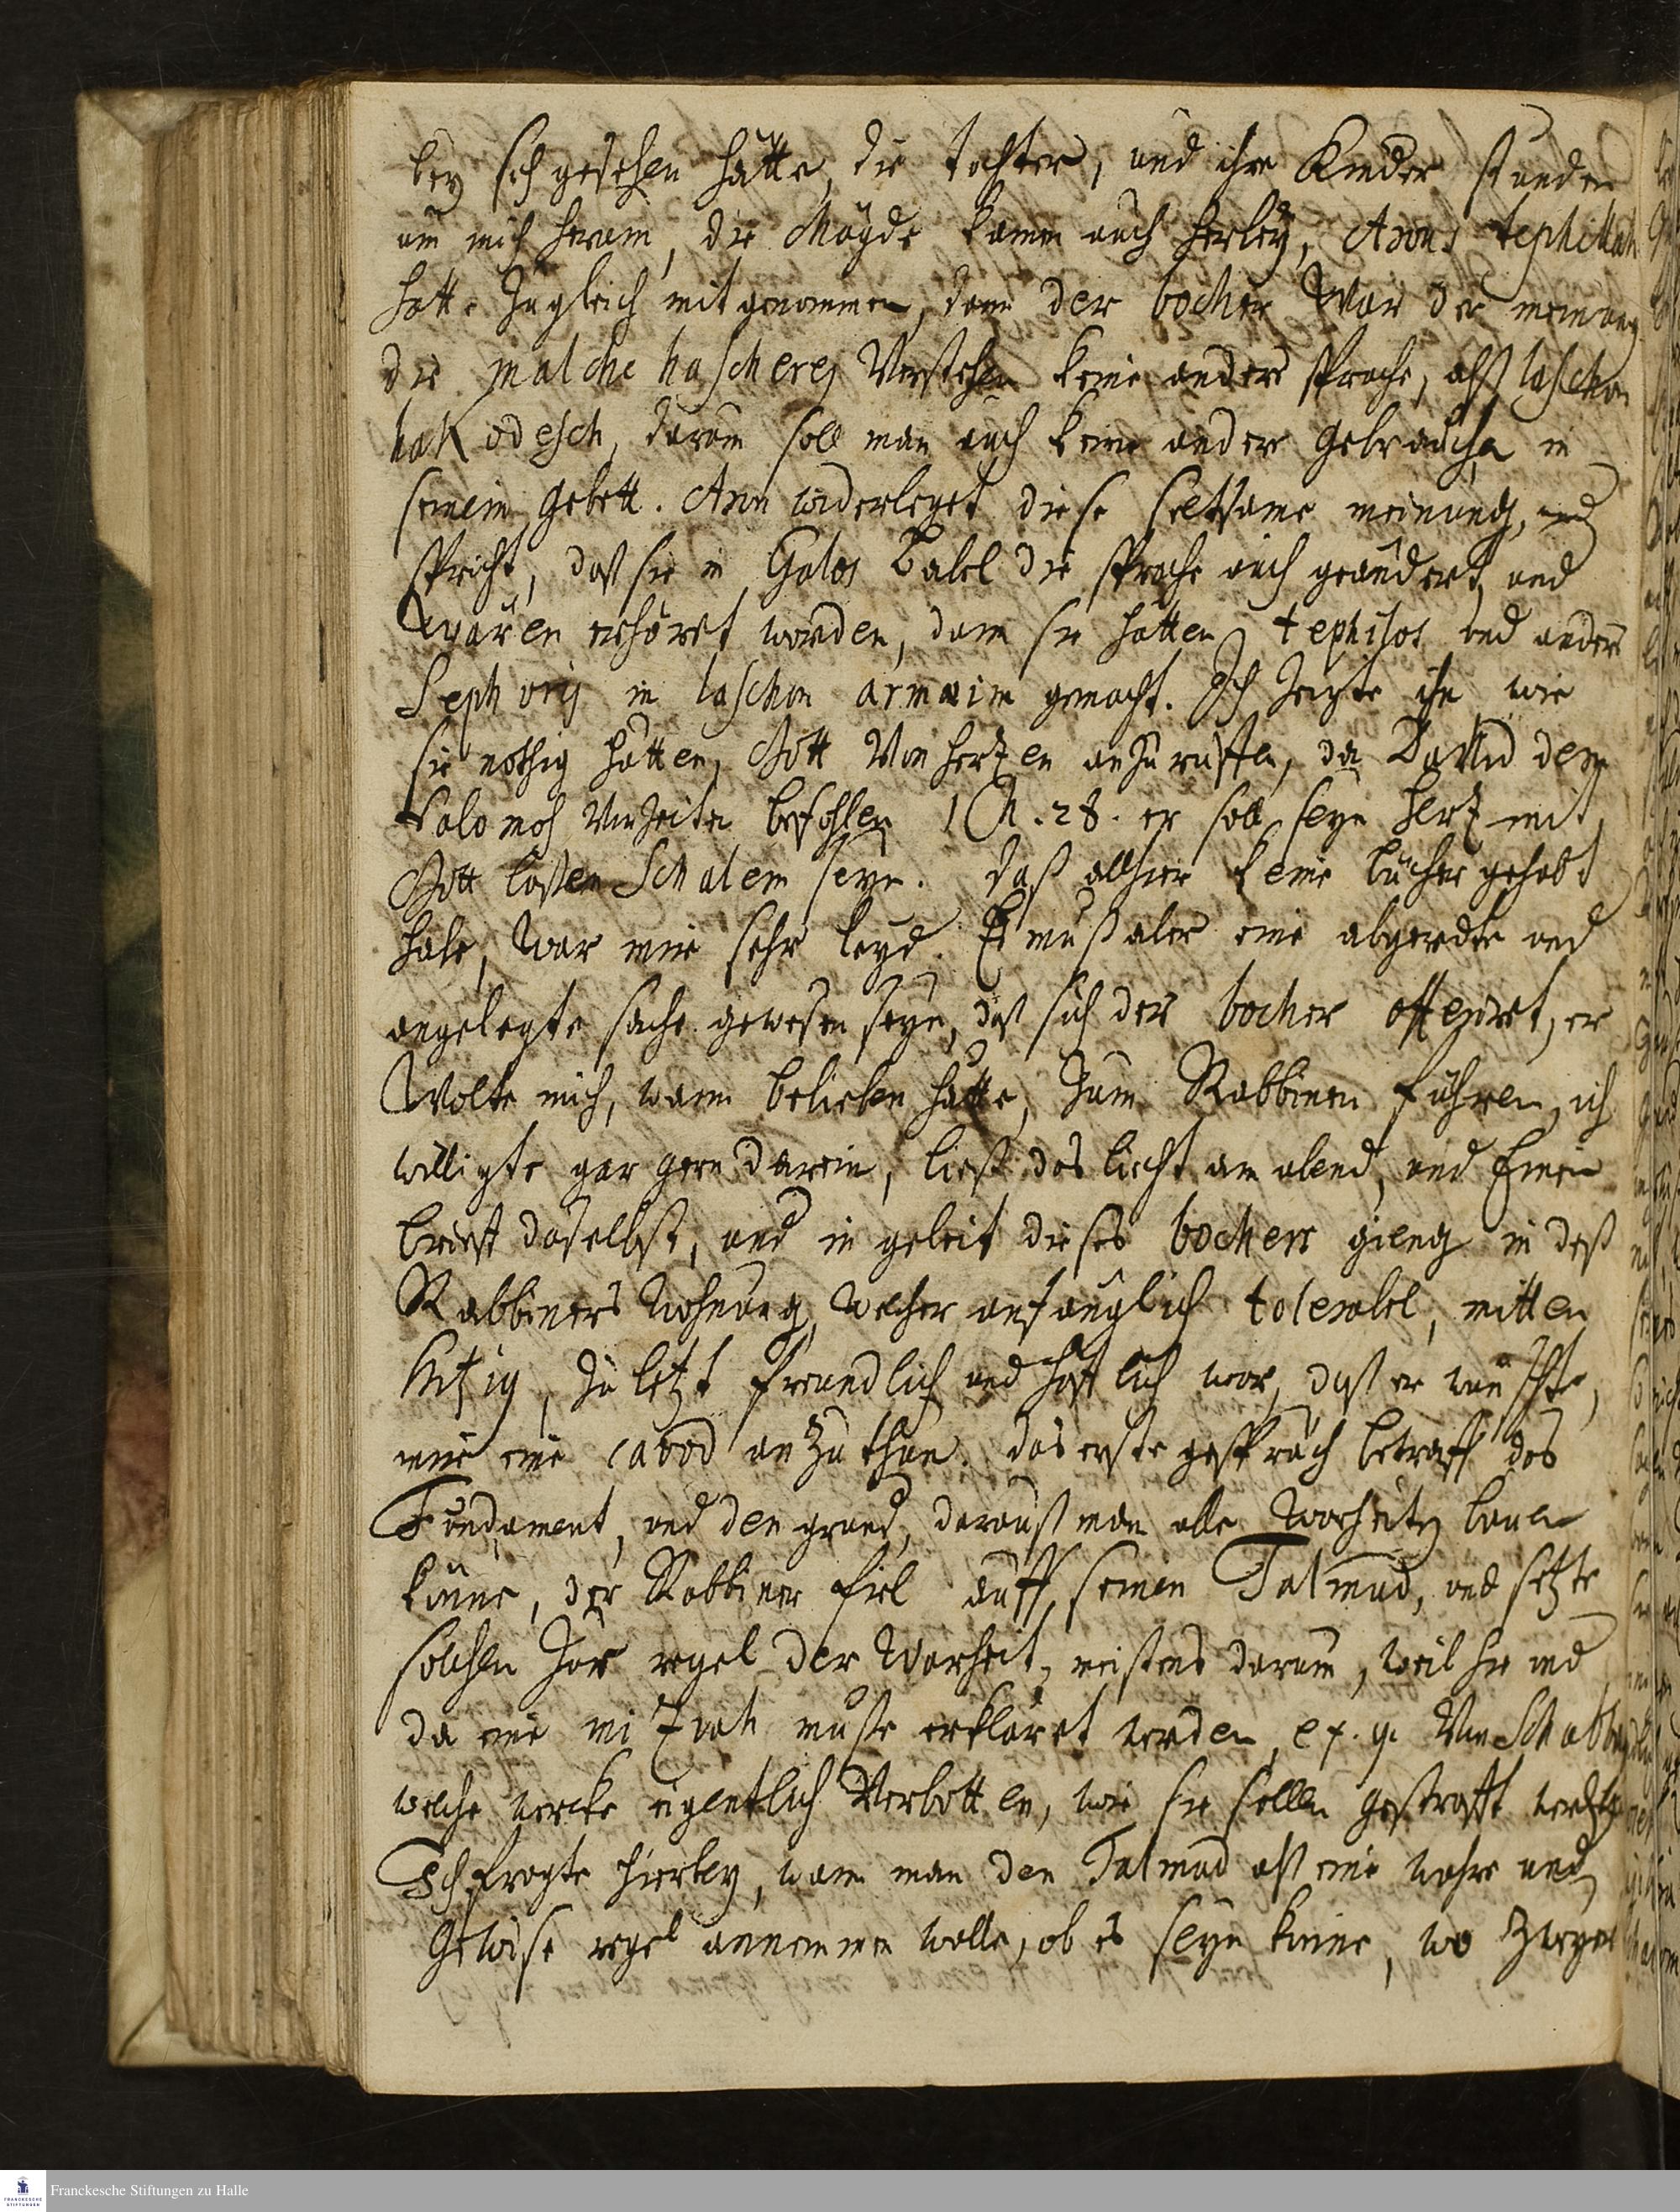 bey sich gesehen hätte, die tochter, und ihre Kinder stunden
um mich herum, die Mägde kamen auch herbey, Arons tephillah
hatte zugleich mit genommen, dann der bocher War der meinung
die malche haschereg Verstehen keine andere sprache, alß laschon
haKodesch, darum soll man auch keine andere Gebrauchen in
seinem Gebett. Aron widerleget diese seltsame meinung, und
spricht, daß sie in Golos Babel die sprache auch geändert, und
Wären erhöret worden, dann sie hatten tephilos und andere
Sephorij in laschon armaim gemacht. Ich zeigte ihn wie
sie nöthig hätten, Gott Von hertzen anzuruffen, da David dem
Salomoh Vorzeiten befohlen 1 Ch. 28. er soll seyn hertz mit
Gott laßen Schalem seyn. daß allhier keine bücher gehabt
habe, War mir sehr leyd. Es muß aber eine abgeredte und
angelegte sache gewesen seyn, daß sich der bocher offeriret, er
Wolte mich, wann belieben hätte, zum Rabbinen führen, ich
willigte gar gern darein, ließ das licht am abend, und Einen
brieff daselbst, und in geleit dieses bochers gieng in deß
Rabbiners Wohnung, Welcher anfänglich tolerabel, mitten
hitzig, zu letzt freundlich und höfflich war, daß er wünschte,
mir eine cavod anzuthun. das erste gespräch betraff das
Fundament, und den grund, darauß man alle Warheiten bauen
könne, der Rabbiner fiel auff seinen Talmud, und setzte
solchen zur regel der Warheit, meistens darum, weil hie und
da eine mizvah müste erkläret werden, ex. gr. Von Schabbas
welche wercke eigentlich Verbotten, wie sie sollen gestrafft werden
Ich fragte hierbey, wann man den Talmud alß eine wahre und
Gewise regel annemmen wolle, ob es seyn könne, wo zweyer
Franckesche Stiftungen zu Halle